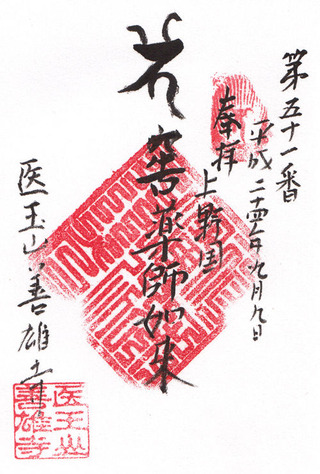 第五十一番
平成二十四年九月九日
奉拝
上野国
薬師如来
医王山善雄寺
医王山
善雄寺